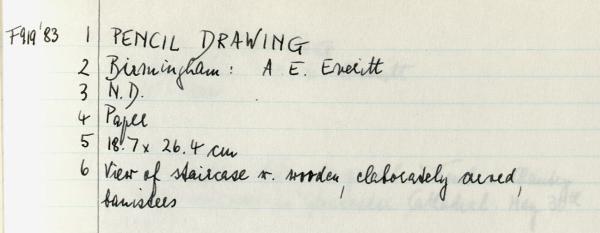 F919'83 1 PENCIL DRAWING
2 Birmingham: A E. Everitt
3 N.D.
4 Paper
5 18.7 x 26.4 cm
6 View of staircase w. wooden, elaborately carved,
banisters